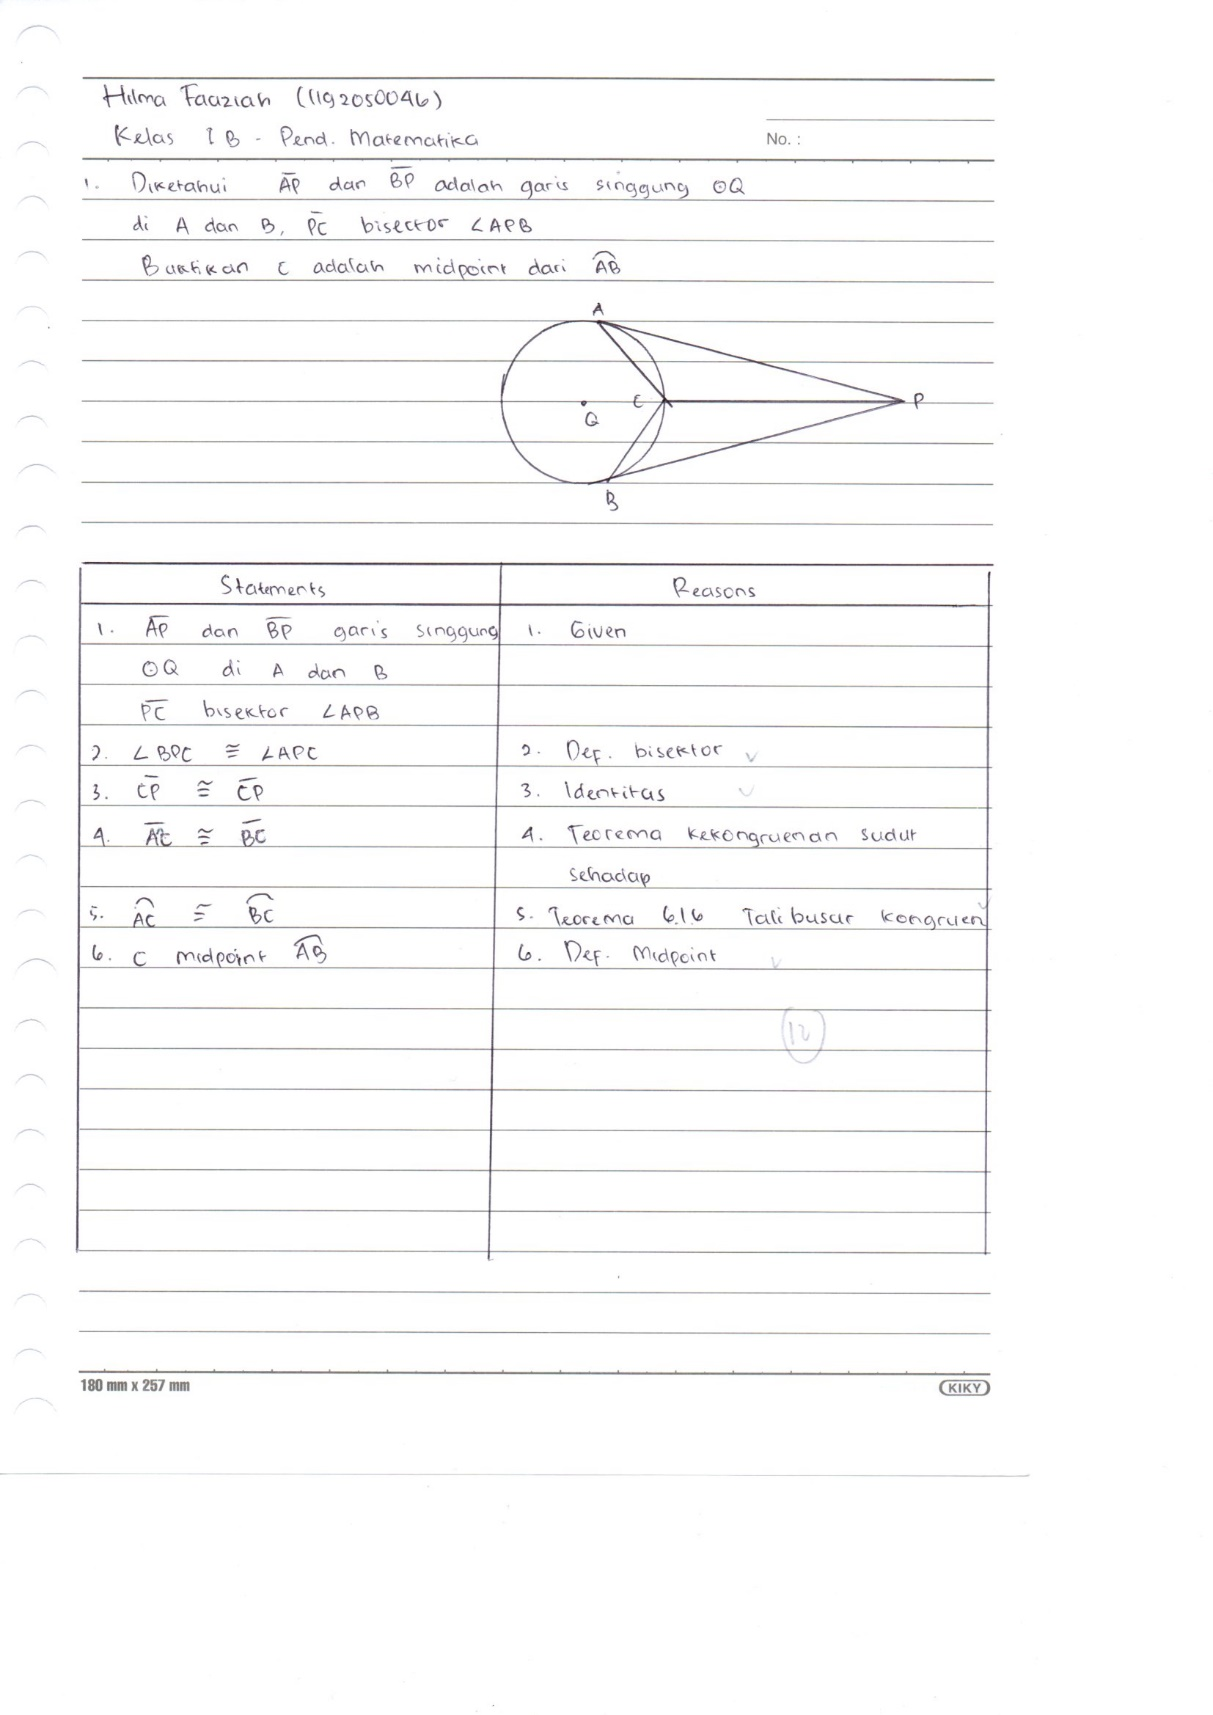 Hilma Fauziah (1192050046)
Kelas 1 B - Pend. Matematika
No. :
1. Diketahui A̅P̅ dan B̅P̅ adalah garis singgung ⊙Q
di A dan B, P̅C̅ bisector ∠APB
Buktikan C adalah midpoint dari A͡B
A
C
P
Q
B
Statements Reasons
1. A̅P̅ dan B̅P̅ garis singgung 1. Given
⊙Q di A dan B
P̅C̅ bisektor ∠APB
2. ∠BPC ≅ ∠APC 2. Def. bisektor ✓
3. C̅P̅ ≅ C̅P̅ 3. Identitas ✓
4. A̅C̅ ≅ B̅C̅ 4. Teorema kekongruenan sudut
sehadap
5. A͡C ≅ B͡C 5. Teorema 6.1.6 Tali busur kongruen ✓
6. C midpoint A͡B 6. Def. Midpoint ✓
12
180 mm x 257 mm
KIKY